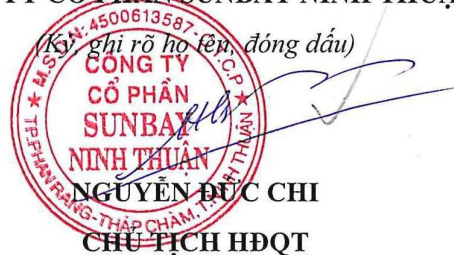 TY CỔ PHẦN SUNBAY NINH THUẬN
(Ký, ghi rõ họ tên, đóng dấu)
M.S.D.N: 4500613587 - C.T.C.P
CÔNG TY
CỔ PHẦN
SUNBAY
NINH THUẬN
TP.PHAN RANG-THÁP CHÀM, T.NINH THUẬN
NGUYỄN ĐỨC CHI
CHỦ TỊCH HĐQT